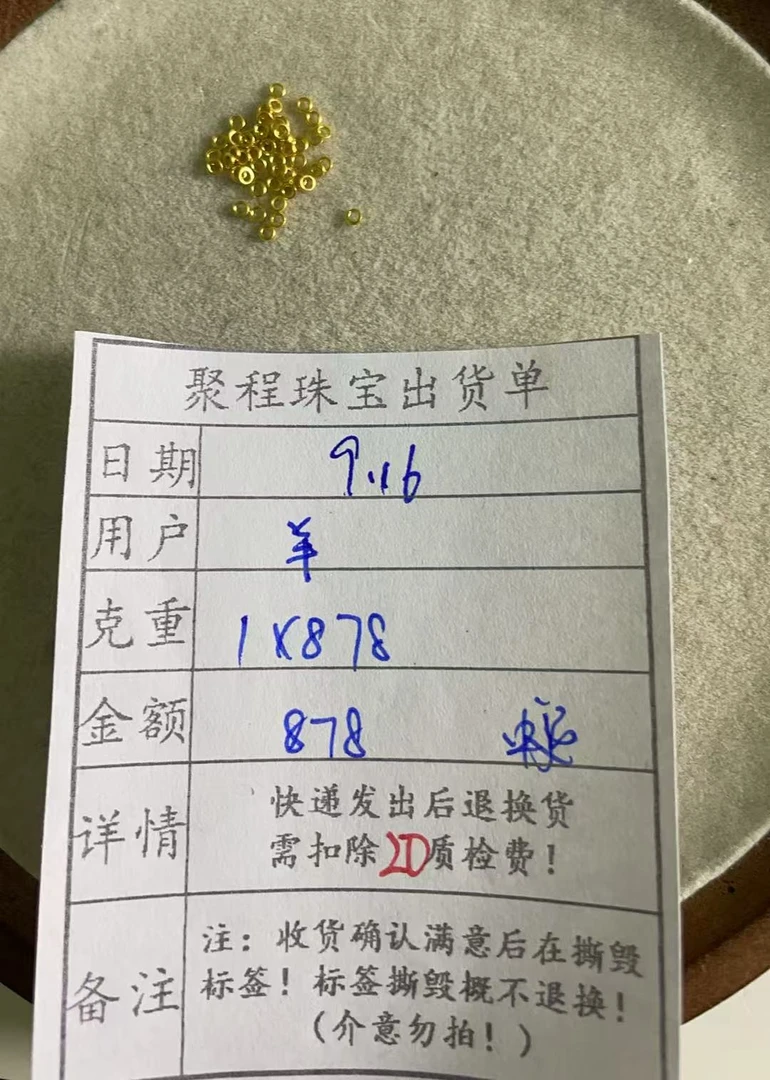 聚程珠宝出货单
日期 9.16
用户 羊
克重 1×878
金额 878
详情 快递发出后退换货
需扣除20质检费！
备注 注：收货确认满意后在撕毁
标签！标签撕毁概不退换！
（介意勿拍！）